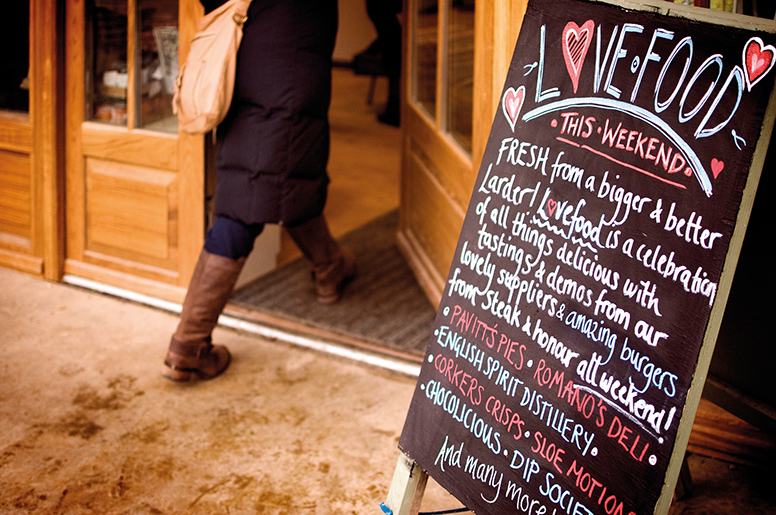 LOVE • FOOD
• THIS • WEEKEND •
FRESH from a bigger & better
Larder! Lovefood is a celebration
of all things delicious with
tastings & demos from our
lovely suppliers & amazing burgers
from Steak & honour all weekend!
• PAVITT'S PIES • ROMANO'S DELI •
• ENGLISH SPIRIT DISTILLERY •
• CORKERS CRISPS • SLOE MOTION •
• CHOCOLICIOUS • DIP SOCIETY
And many more!